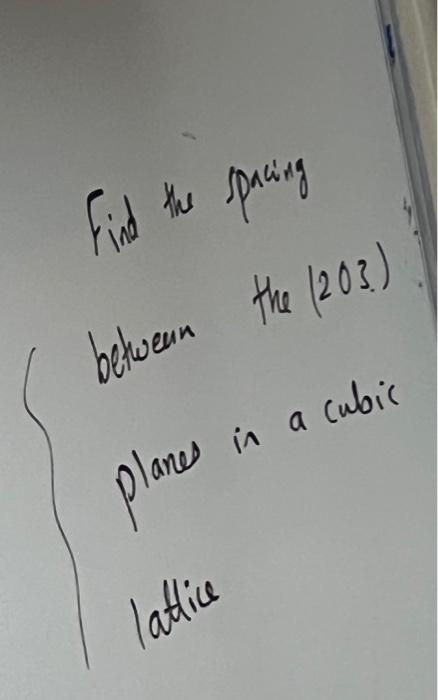 Find the spacing
between the (203.)
planes in a cubic
lattice